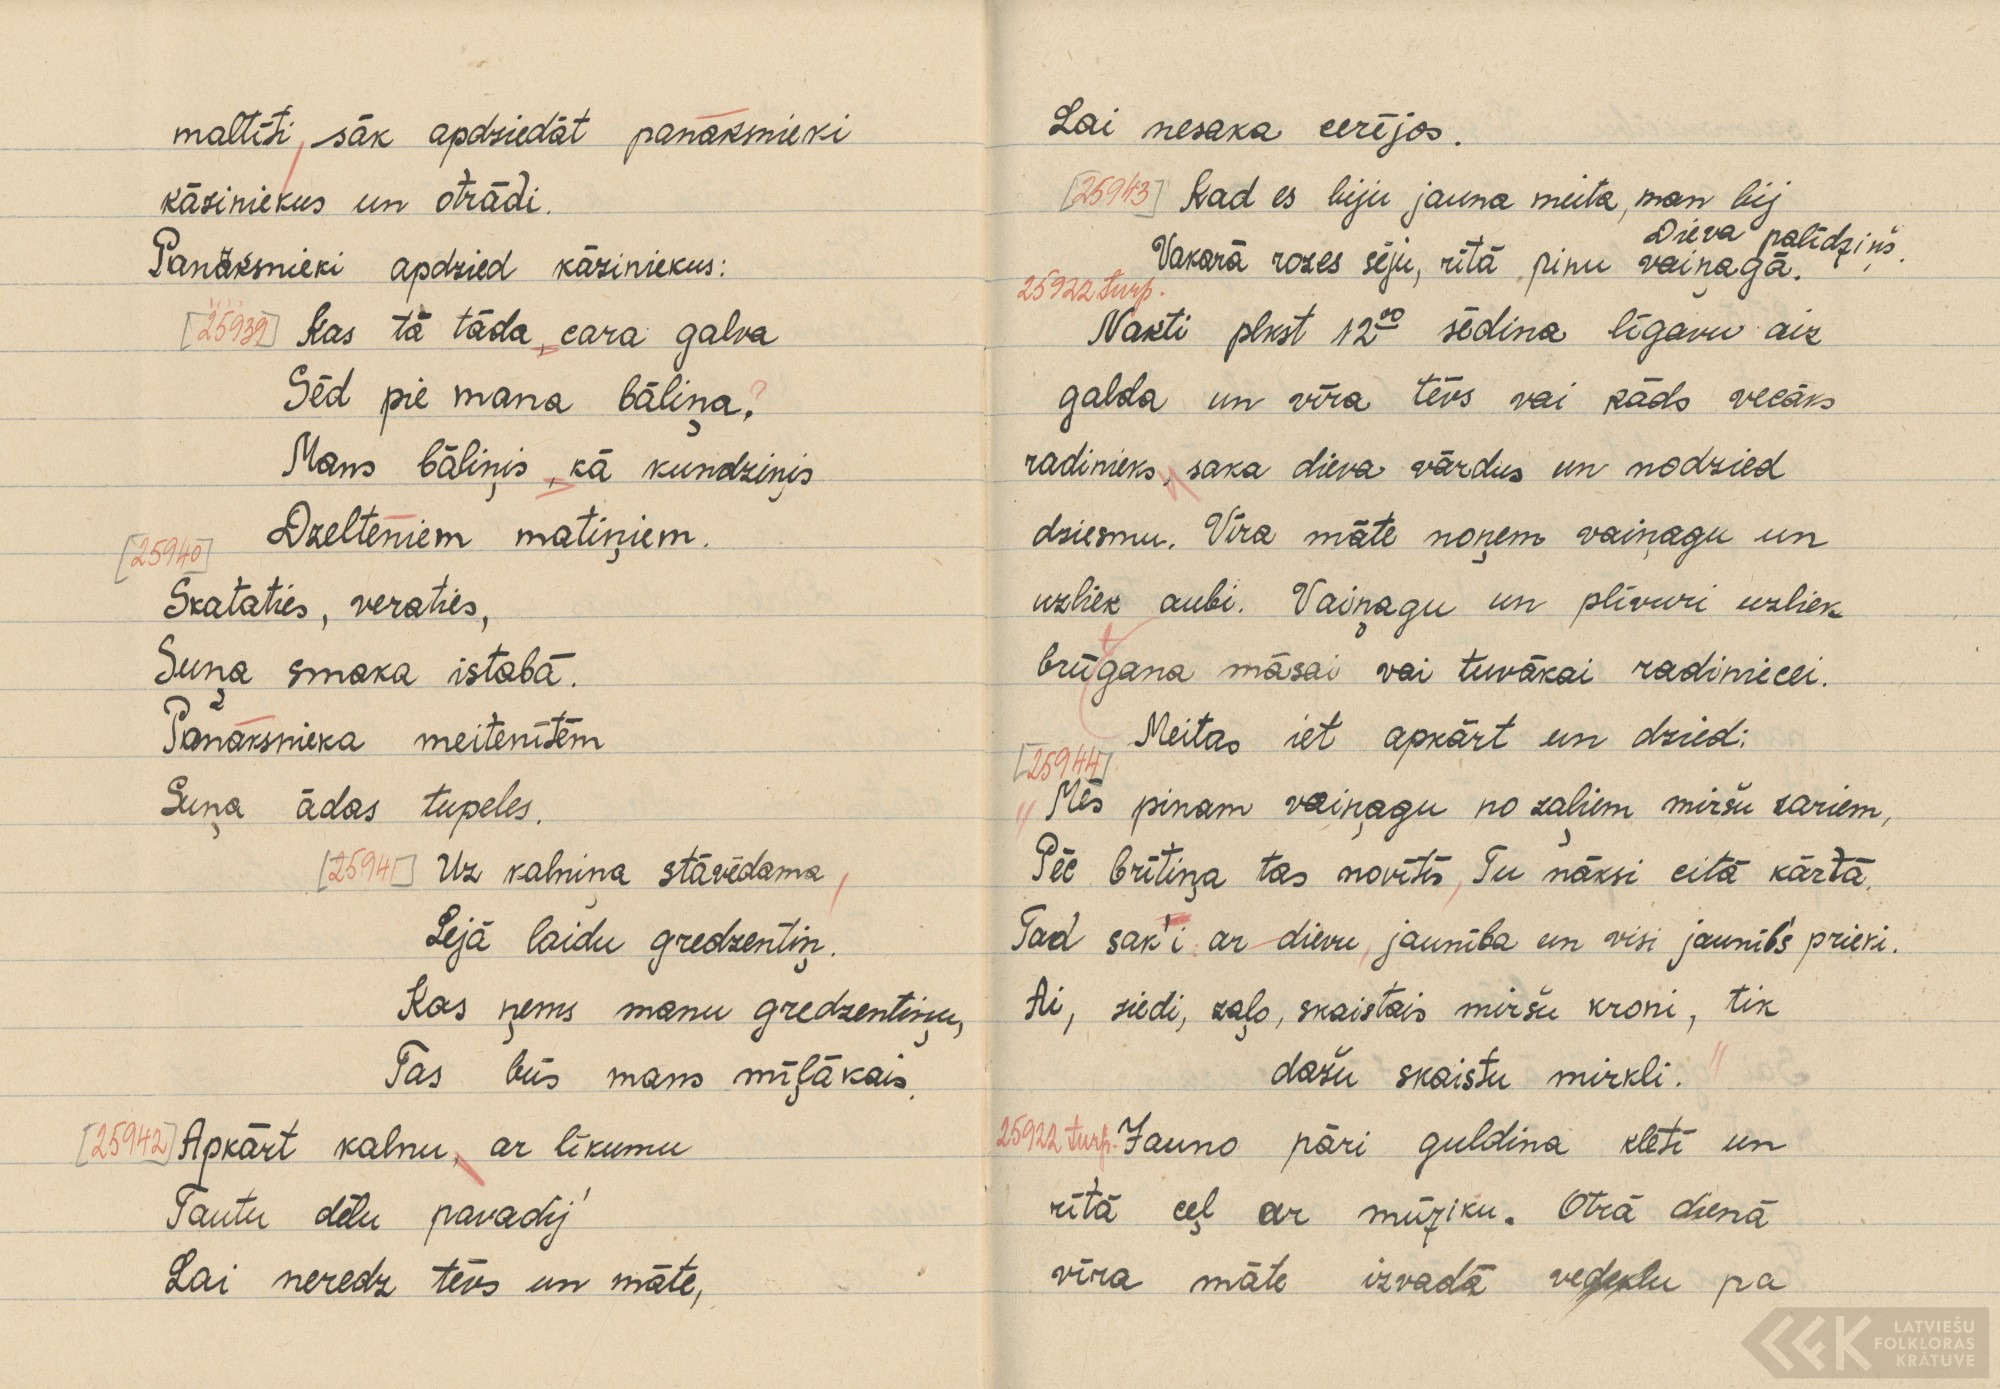 maltīti, sāk apdziedāt panāksnieki
kāziniekus un otrādi.
Panāksnieki apdzied kāziniekus:
[25939] Kas tā tāda, cara galva
Sēd pie mana bāliņa?
Mans bāliņis, kā kundziņis
Dzelteniem matiņiem.
[25940]
Skataties, veraties,
Suņa smaka istabā.
Panāksnieka meitenītēm
Suņa ādas tupeles.
[25941] Uz kalniņa stāvēdama,
Lejā laidu gredzentiņ.
Kas ņems manu gredzentiņu,
Tas būs mans mīļākais.
[25942] Apkārt kalnu, ar līkumu
Tautu dēlu pavadīj'
Lai neredz tēvs un māte,
Lai nesaka cerējos.
[25943] Kad es biju jauna meita, man bij
Dieva palīdziņš.
Vakarā rozes sēju, rītā pinu vaiņagā.
25922 turp.
Naktī plkst 12⁰⁰ sēdina līgavu aiz
galda un vīra tēvs vai kāds vecāks
radinieks, saka dieva vārdus un nodzied
dziesmu. Vīra māte noņem vaiņagu un
uzliek aubi. Vaiņagu un plīvuri uzliek
brūgana māsai vai tuvākai radiniecei.
Meitas iet apkārt un dzied:
[25944]
"Mēs pinam vaiņagu no zaļiem miršu zariem,
Pēc brītiņa tas novītīs, Tu nāksi citā kārtā.
Tad sak'i ar dievu, jaunība un visi jaunīb's prieki.
Ai, ziedi, zaļo, skaistais miršu kroni, tik
dažu skaistu mirkli."
25922 turp. Jauno pāri guldina klētī un
rītā ceļ ar mūziku. Otrā dienā
vīra māte izvadā vedeklu pa
LATVIEŠU
FOLKLORAS
KRĀTUVE